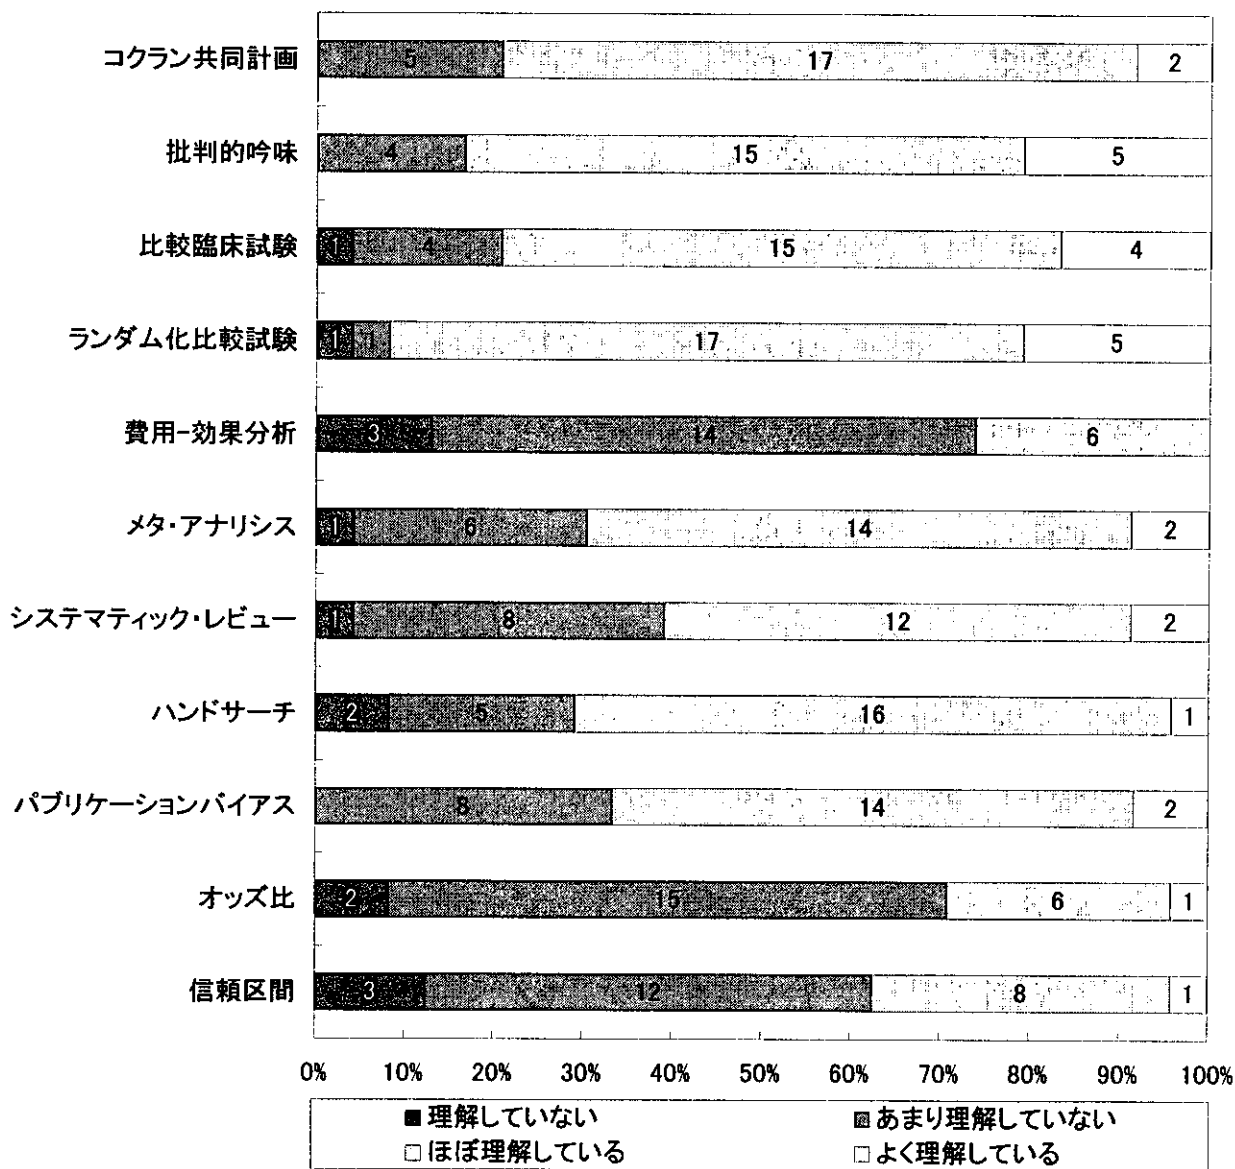 コクラン共同計画 5 17 2
批判的吟味 4 15 5
比較臨床試験 1 4 15 4
ランダム化比較試験 1 1 17 5
費用-効果分析 3 14 6
メタ・アナリシス 1 6 14 2
システマティック・レビュー 1 8 12 2
ハンドサーチ 2 5 16 1
パブリケーションバイアス 8 14 2
オッズ比 2 15 6 1
信頼区間 3 12 8 1
0% 10% 20% 30% 40% 50% 60% 70% 80% 90% 100%
理解していない あまり理解していない
ほぼ理解している よく理解している